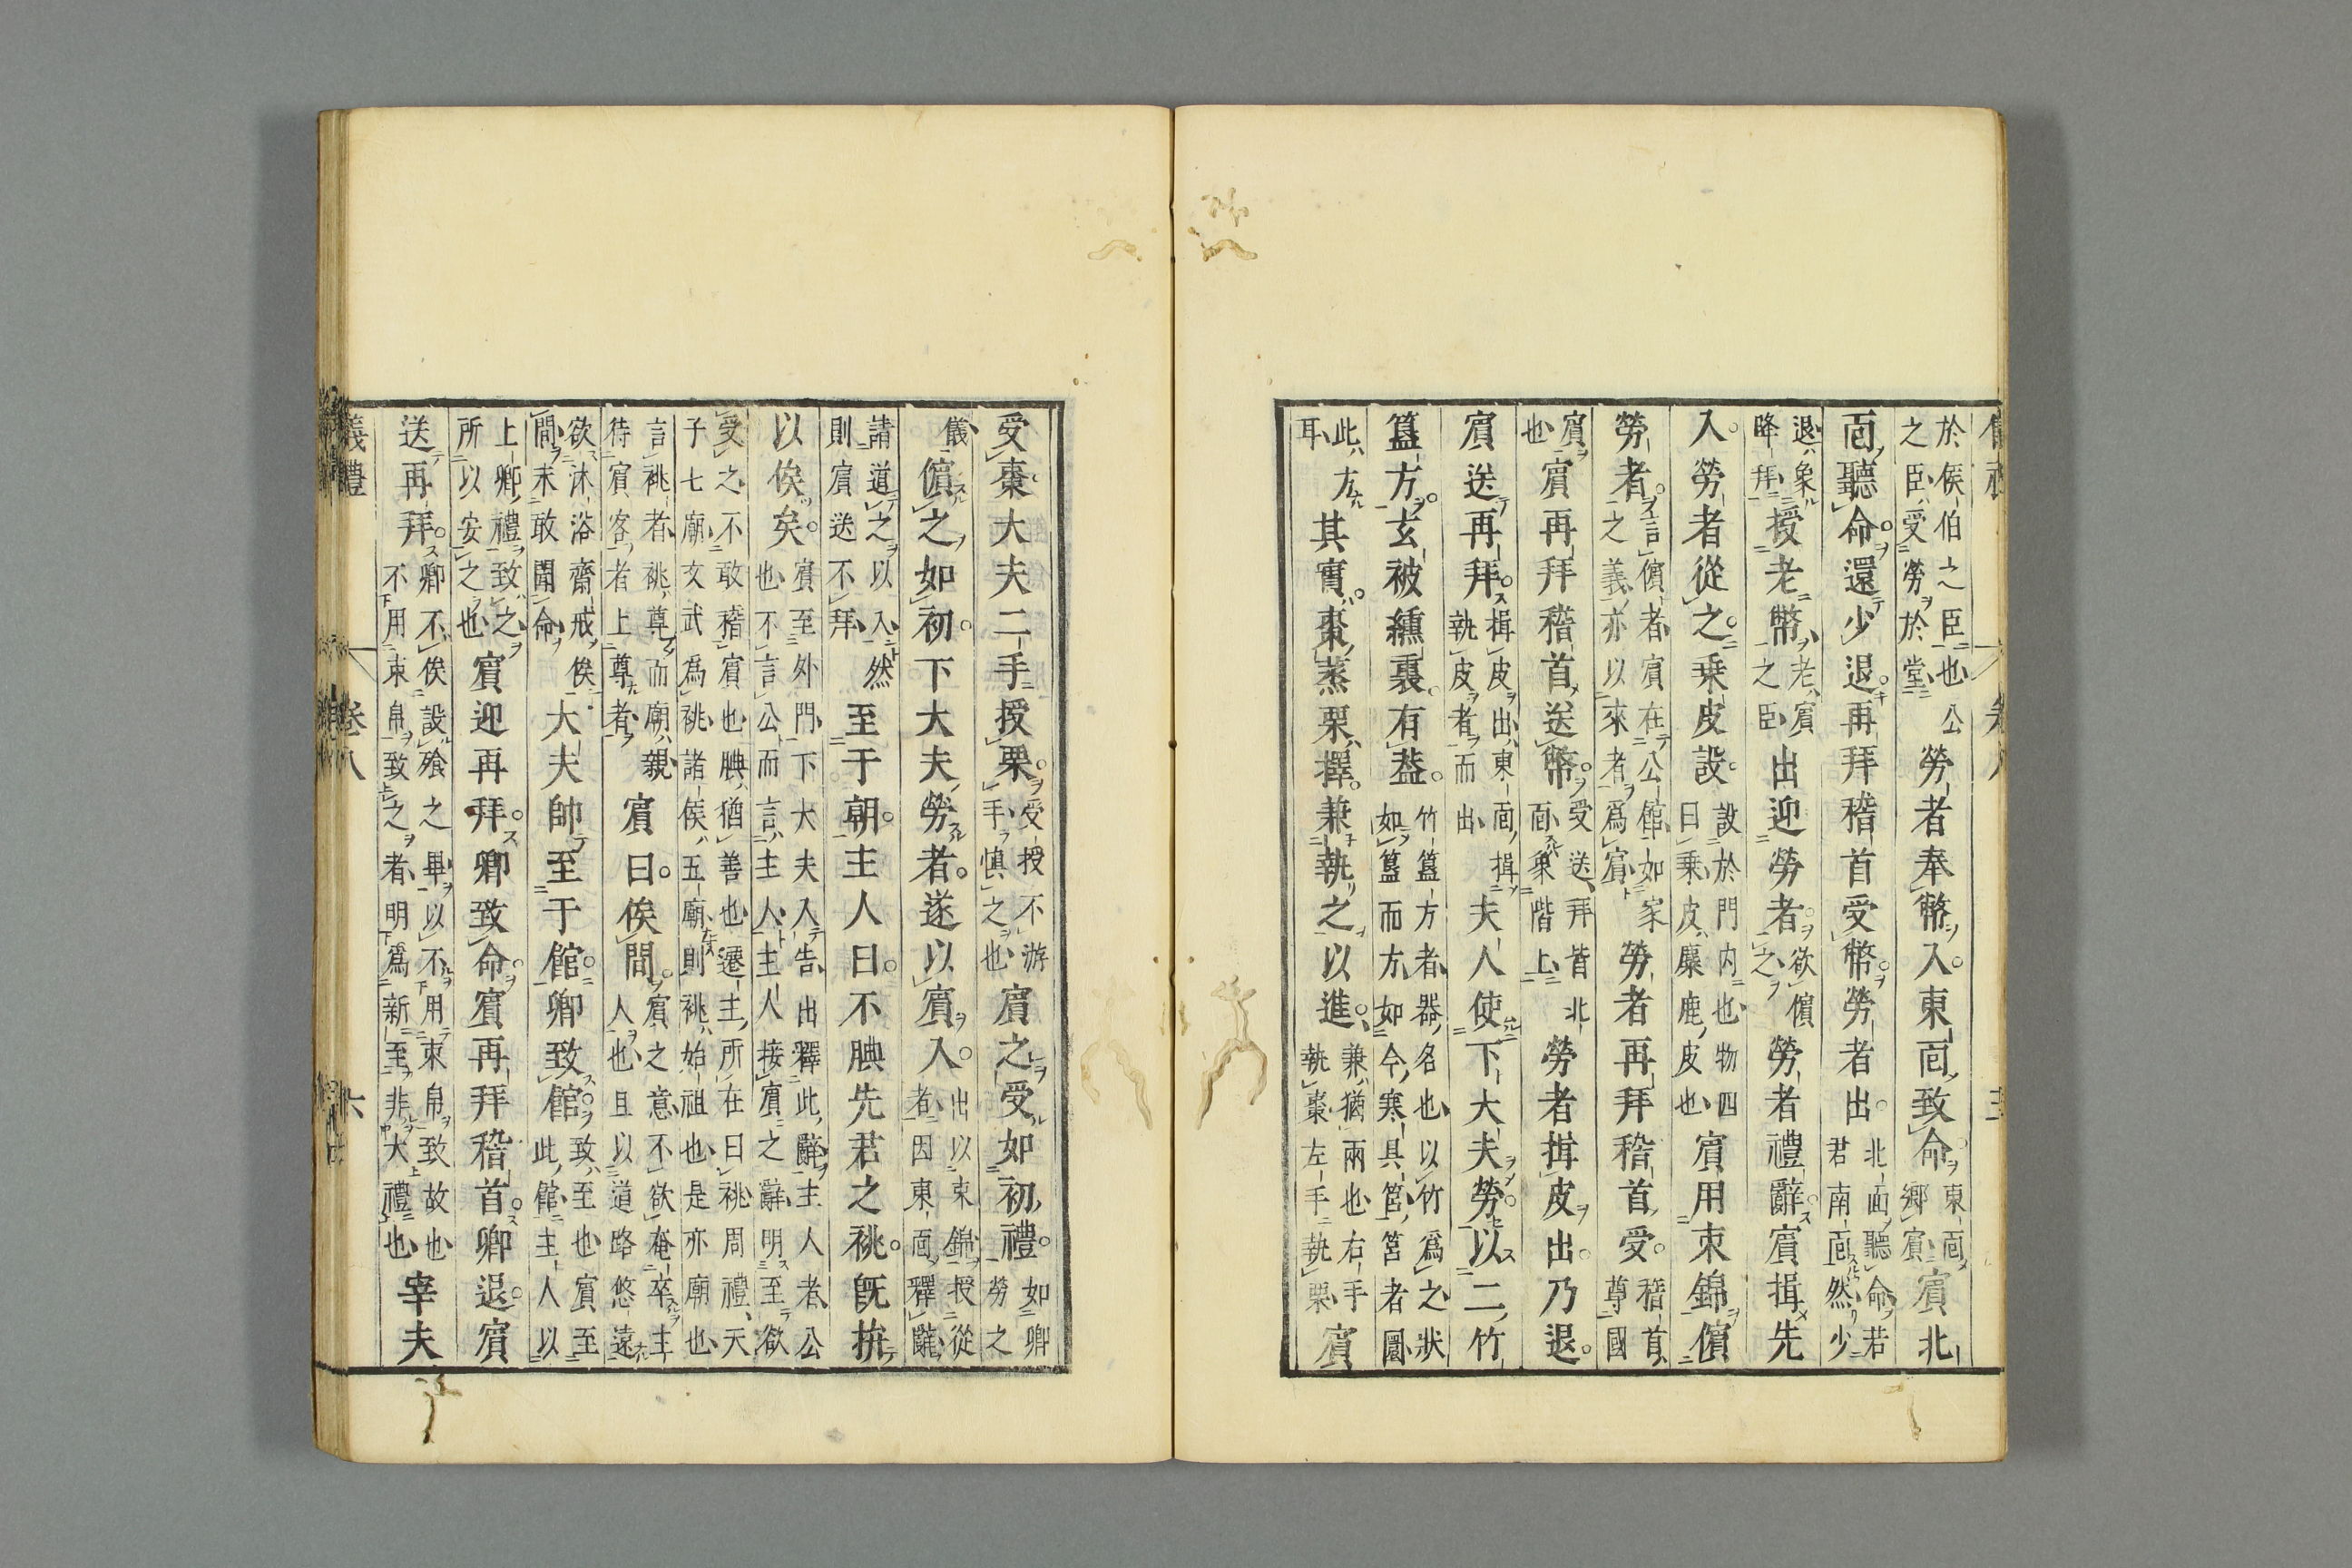 於侯伯之臣也公之臣受勞於堂勞者奉幣入東面致命東面鄉賓賓北
面聽命還少退再拜稽首受幣勞者出北面聽命若君南面然少
退象降拜授老幣老賓之臣出迎勞者欲儐之勞者禮辭賓揖先
入勞者從之乘皮設設於門内也物四曰乘皮麋鹿皮也賓用束錦儐
勞者言儐者賓在公館如家之義亦以來者爲賓勞者再拜稽首受稽首尊國
賓也賓再拜稽首送幣受送拜皆北面象階上勞者揖皮出乃退
賓送再拜揖皮出東面揖執皮者而出夫人使下大夫勞以二竹
簋方玄被纁裏有蓋竹簋方者器名也以竹爲之狀如簋而方如今寒具筥筥者圜
此方耳其實棗蒸栗擇兼執之以進兼猶兩也右手執棗左手執栗賓
受棗大夫二手授栗受授不游手慎之也賓之受如初禮如卿勞之
儀儐之如初下大夫勞者遂以賓入出以束錦授從者因東面釋辭
請道之以入然則賓送不拜至于朝主人曰不腆先君之祧既拚
以俟矣賓至外門下大夫入告出釋此辭主人者公也不言公而言主人主人接賓之辭明至欲
受之不敢稽賓也腆猶善也遷主所在曰祧周禮天子七廟文武爲祧諸侯五廟則祧始祖也是亦廟也
言祧者祧尊而廟親待賓客者上尊者賓曰俟間賓之意不欲奄卒主人也且以道路悠遠
欲沐浴齋戒俟間未敢聞命大夫帥至于館卿致館致至也賓至此館主人以
上卿禮致之所以安之也賓迎再拜卿致命賓再拜稽首卿退賓
送再拜卿不俟設飧之畢以不用束帛致故也不用束帛致之者明爲新至非大禮也宰夫
義禮 卷八 六